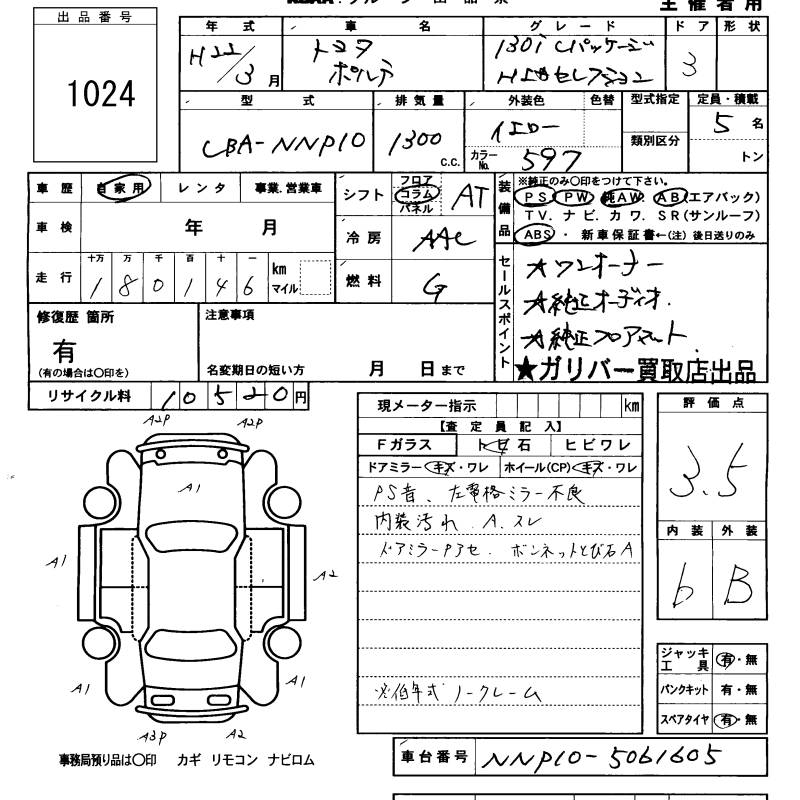 主催者用
出品番号
1024
年式 車名 グレード ドア 形状
H22/3月 トヨタ ポルテ 130i Cパッケージ HIDセレクション 3
型式 排気量 外装色 色替 型式指定 定員・積載
CBA-NNP10 1300 c.c. イエロー 5名
カラーNo. 597 類別区分 トン
車歴 自家用 レンタ 事業.営業車
シフト フロア コラム パネル AT
車検 年 月
冷房 AAC
走行 十万 万 千 百 十 一
180146 km マイル
燃料 G
装備品 ※純正のみ〇印をつけて下さい。
PS PW 純AW. AB(エアバック)
TV. ナビ. カワ. SR(サンルーフ)
ABS ・ 新車保証書←(注) 後日送りのみ
セールスポイント
★ワンオーナー
★純正オーディオ.
★純正フロアマット
★ガリバー買取店出品
修復歴 箇所
有
(有の場合は〇印を)
注意事項
名変期日の短い方 月 日まで
リサイクル料 10520円
現メーター指示 km
【査定員記入】
Fガラス トビ石 ヒビワレ
ドアミラー キズ・ワレ ホイール(CP) キズ・ワレ
PS音、左電格ミラー不良
内装汚れ. A.スレ
ドアミラーPアセ. ボンネットとび石A
低年式 ノークレーム
評価点
3.5
内装 外装
b B
ジャッキ工具 有・無
パンクキット 有・無
スペアタイヤ 有・無
A2P A2P
A1
A1 A2
A1 A1
A3P A2
事務局預り品は〇印 カギ リモコン ナビロム
車台番号 NNP10-5061605